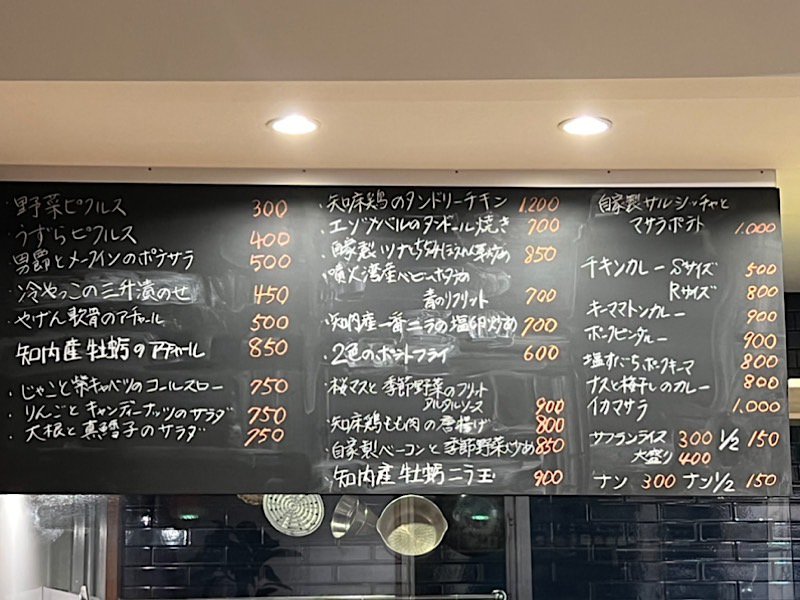 ・野菜ピクルス 300
・うずらピクルス 400
男爵とメークインのポテサラ 500
・冷やっこの三升漬のせ 450
・やげん軟骨のアチャール 500
知内産牡蛎のアチャール 850
・じゃこと紫キャベツのコールスロー 750
・りんごとキャンディーナッツのサラダ 750
・大根と真鱈子のサラダ 750
・知床鶏のタンドリーチキン 1,200
・エゾツカベルのタンドール焼き 700
・自家製ツナとちぢみほうれん草炒め 850
・噴火湾産ベビーホタテの
青のりフリット 700
・知内産一番ニラの塩卵炒め 700
・2色のポテトフライ 600
・桜マスと季節野菜のフリット
タルタルソース 900
・知床鶏もも肉の唐揚げ 800
・自家製ベーコンと季節野菜炒め 850
・知内産牡蛎ニラ玉 900
自家製サルシッチャと
マサラポテト 1,000
チキンカレー Sサイズ 500
Rサイズ 800
キーママトンカレー 900
ポークビンダルー 900
塩すじポークキーマ 800
ナスと梅干しのカレー 800
イカマサラ 1,000
サフランライス 300 1/2 150
大盛り 400
ナン 300 ナン1/2 150